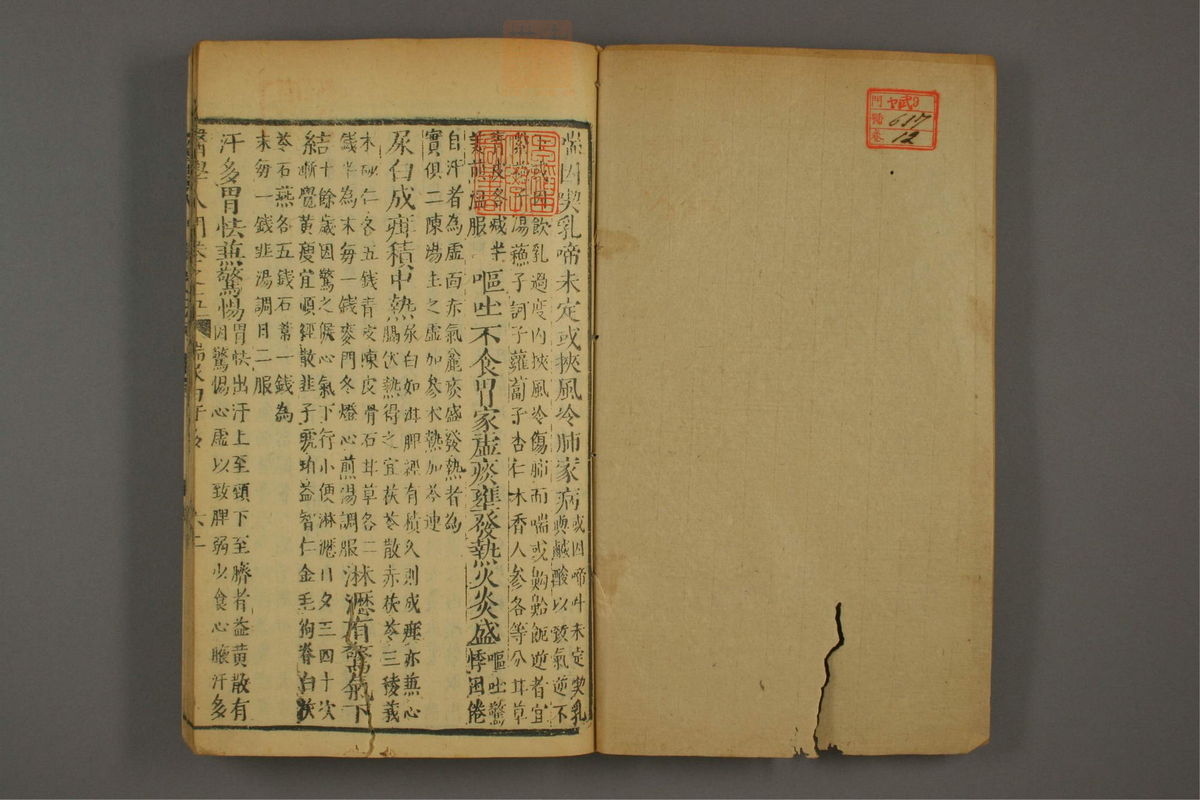 喘因喫乳啼未定或挾風冷肺家病或因啼叫未定喫乳
與鹹酸以致氣逆不
或因飲乳過度内挾風冷傷肺而喘或齁䶎飽逆者宜
紫蘇子湯蘇子訶子蘿蔔子杏仁木香人參各等分甘草
青皮各減半
姜煎温服 嘔吐不食胃家虚痰壅發熱火炎盛嘔吐驚
悸困倦
自汗者為虚面赤氣麄痰盛發熱者為
實俱二陳湯主之虚加參朮熱加芩連
尿白成疳積中熱尿白如泔脾經有積久則成疳亦兼心
膈伏熱得之宜茯苓散赤茯苓三稜莪
朮砂仁各五錢青皮陳皮滑石甘草各二
錢半為末每一錢麥門冬燈心煎湯調服 淋瀝有驚氣下
結十餘歲因驚之候心氣下行小便淋瀝日夕三四十次
漸覺黄瘦宜順經散韭子琥珀益智仁金毛狗脊白茯
苓石燕各五錢石葦一錢為
末每一錢韭湯調日二服
汗多胃怯兼驚惕胃怯出汗上至頸下至臍者益黄散有
因驚惕心虚以致脾弱少食心腋汗多
醫學入門卷之五 喘尿白汗多 六二
門 ヤ武9
番 617
巻 12